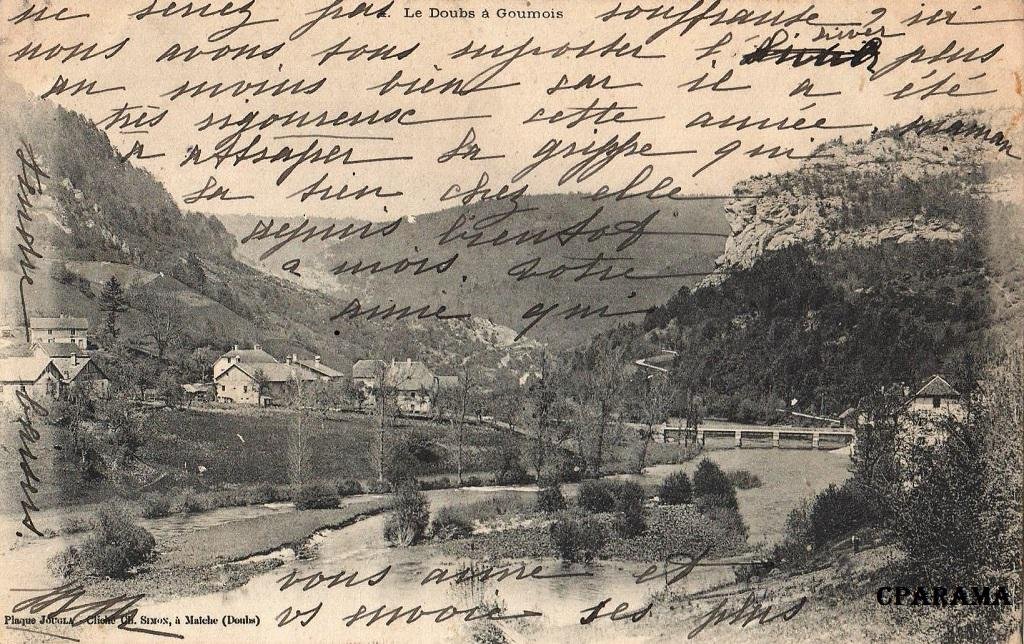 2. Le Doubs à Goumois
ne serez pas souffrante ? ici
nous avons tous suporter l'hiver plus
au moins bien car il a été
très rigoureuse cette année, maman
a attraper la grippe qui
la tien chez elle
depuis bientot
2 mois. votre
amie qui
vous aime et
vs envoie ses plus
doux baisers
Plaque JOUGLA - Cliché Ch. SIMON, à Maîche (Doubs)
CPARAMA